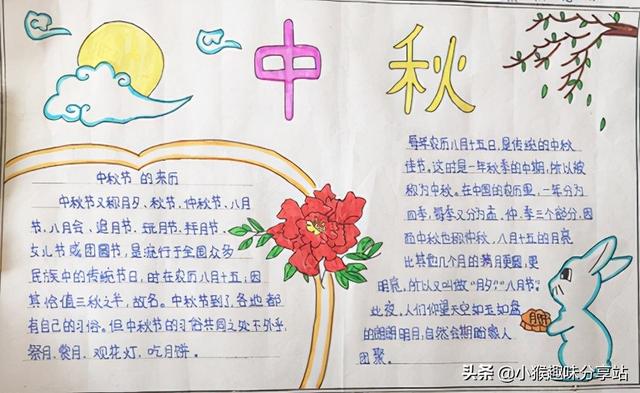 中秋
中秋节的来历
中秋节又称月夕、秋节、仲秋节、八月
节、八月会、追月节、玩月节、拜月节、
女儿节或团圆节，是流行于全国众多
民族中的传统节日，时在农历八月十五；因
其恰值三秋之半，故名。中秋节到了，各地都
有自己的习俗。但中秋节的习俗共同之处不外乎，
祭月、赏月、观花灯、吃月饼。
每年农历八月十五日，是传统的中秋
佳节。这时是一年秋季的中期，所以被
称为中秋。在中国的农历里，一年分为
四季，每季又分为孟、仲、季三个部分，因
而中秋也称仲秋。八月十五的月亮
比其他几个月的满月更圆，更
明亮，所以又叫做“月夕”“八月节”。
此夜，人们仰望天空如玉如盘
的朗朗明月，自然会期盼家人
团聚。
头条 @小猴趣味分享站